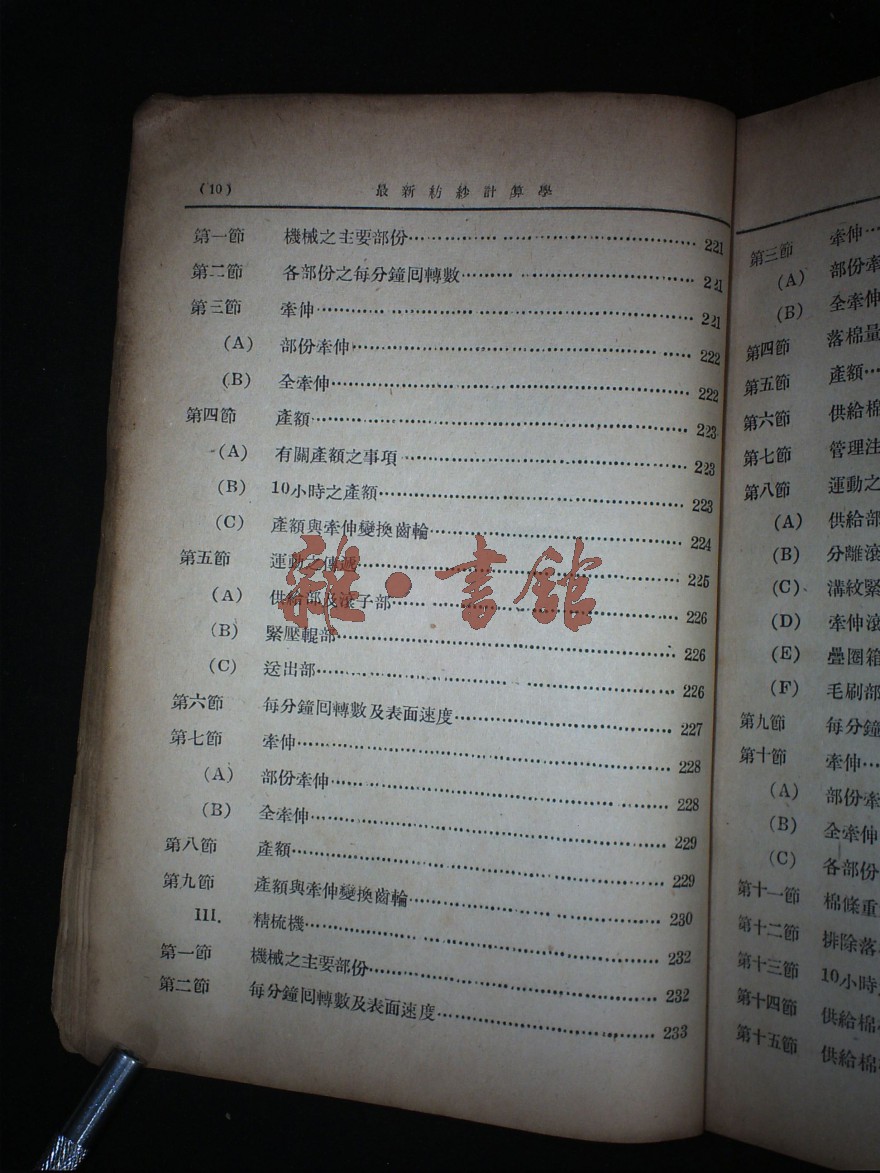 (10) 最新紡紗計算學
第一節 機械之主要部份 221
第二節 各部份之每分鐘囘轉數 221
第三節 牽伸 221
(A) 部份牽伸 222
(B) 全牽伸 222
第四節 產額 223
(A) 有關產額之事項 223
(B) 10小時之產額 223
(C) 產額與牽伸變換齒輪 224
第五節 運動之傳遞 225
(A) 供給部及滾子部 226
(B) 緊壓輥部 226
(C) 送出部 226
第六節 每分鐘囘轉數及表面速度 227
第七節 牽伸 228
(A) 部份牽伸 228
(B) 全牽伸 229
第八節 產額 229
第九節 產額與牽伸變換齒輪 230
III. 精梳機 232
第一節 機械之主要部份 232
第二節 每分鐘囘轉數及表面速度 233
雜·書館
第三節 牽伸
(A) 部份牽
(B) 全牽伸
第四節 落棉量
第五節 產額
第六節 供給棉
第七節 管理注
第八節 運動之
(A) 供給部
(B) 分離滾
(C) 溝紋緊
(D) 牽伸滾
(E) 疊圈箱
(F) 毛刷部
第九節 每分鐘
第十節 牽伸
(A) 部份牽
(B) 全牽伸
(C) 各部份
第十一節 棉條重
第十二節 排除落
第十三節 10小時
第十四節 供給棉
第十五節 供給棉